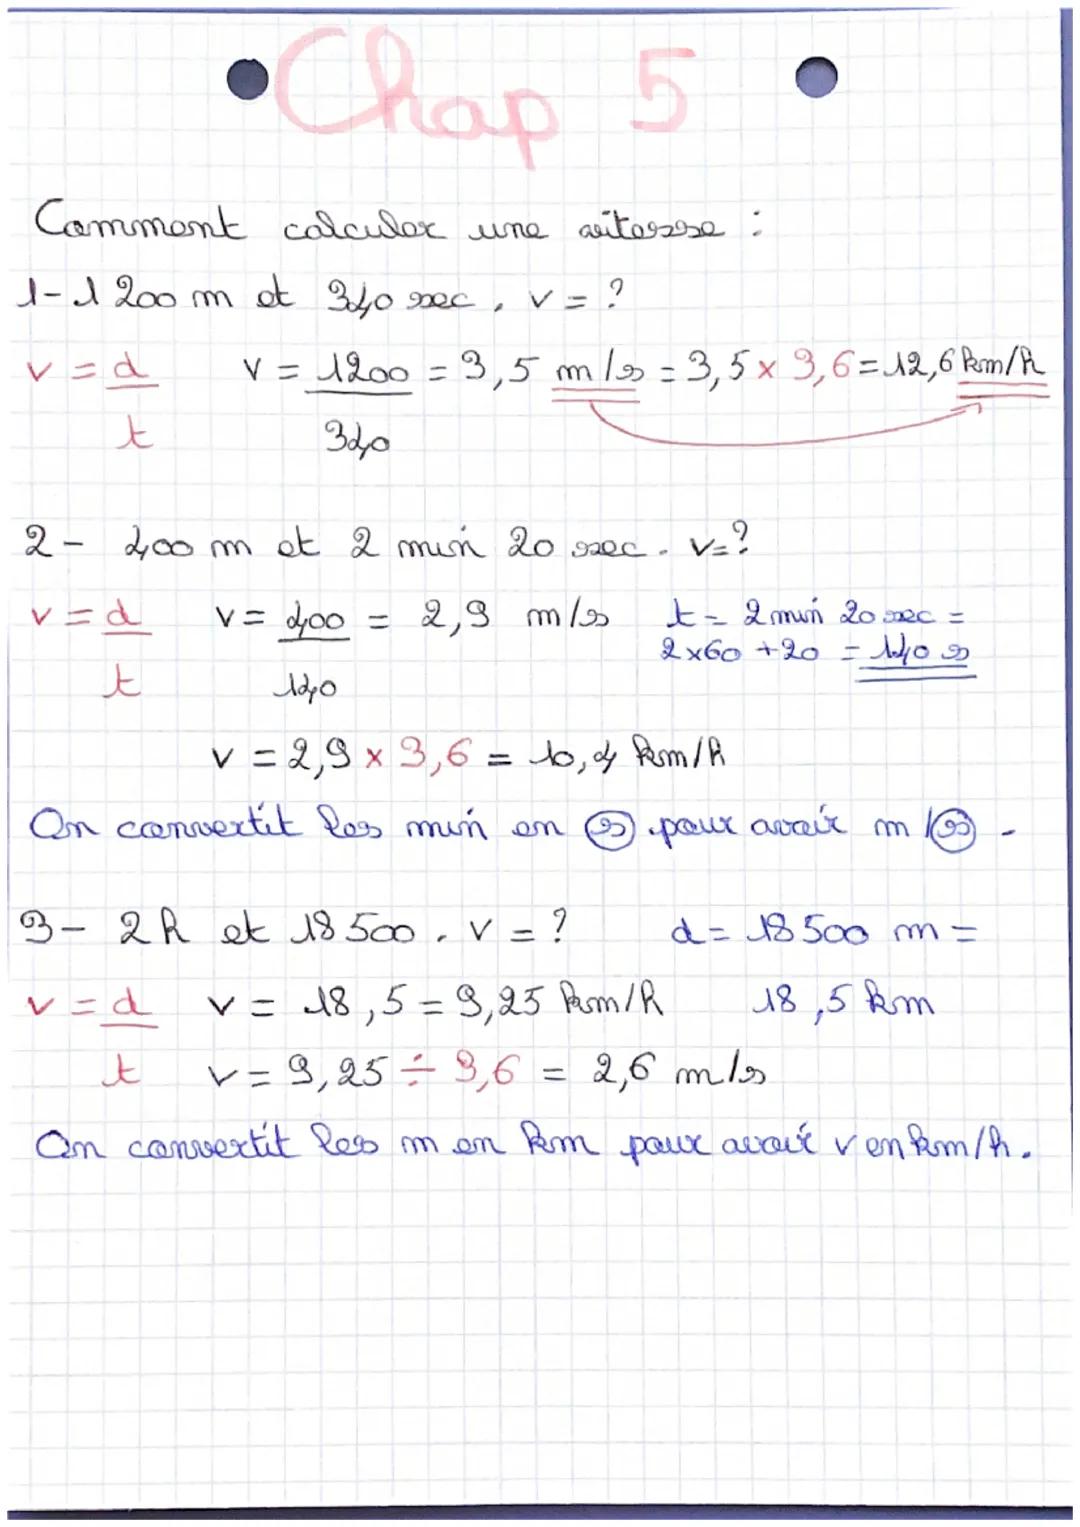 Chap 5
Comment calculer une vitesse :
1-1 200 m et 340 sec, v = ?
v = d/t v = 1200/340 = 3,5 m/s = 3,5 × 3,6 = 12,6 km/h
2 - 400 m et 2 min 20 sec. v = ?
v = d/t v = 400/140 = 2,9 m/s t = 2 min 20 sec =
2×60 + 20 = 140 s
v = 2,9 × 3,6 = 10,4 km/h
On convertit les min en s pour avoir m/s.
3 - 2h et 18 500. v = ? d = 18 500 m =
v = d/t v = 18,5 = 9,25 km/h 18,5 km
v = 9,25 ÷ 3,6 = 2,6 m/s
On convertit les m en km pour avoir v en km/h.